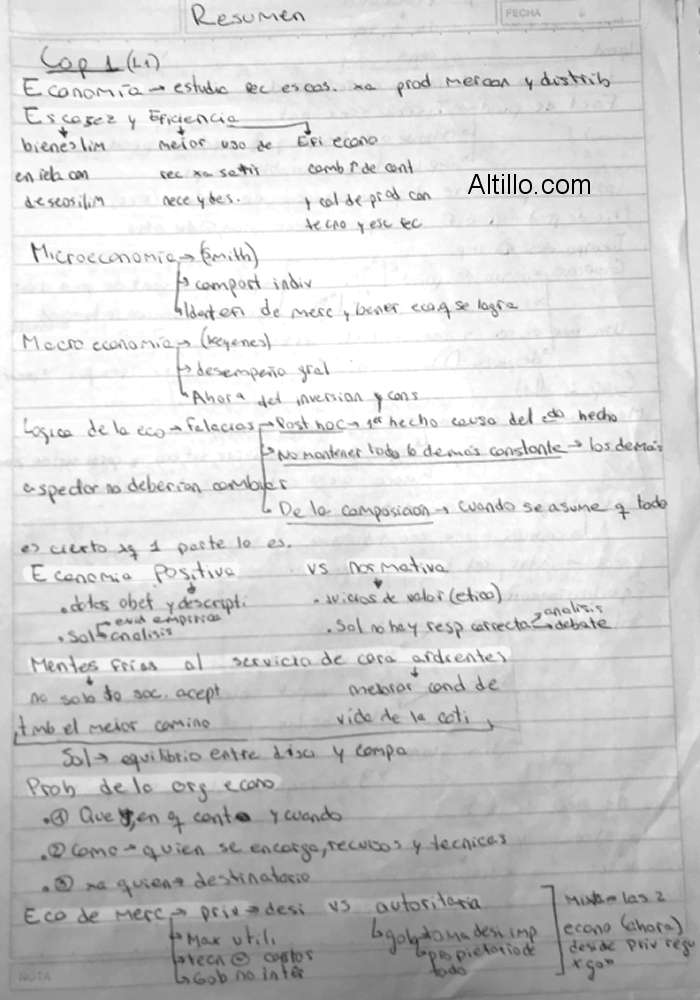 Resumen
FECHA
Cap 1 (L1)
Economía → estudia rec escas. xa prod mercan y distrib
Escasez y Eficiencia
bienes lim mejor uso de Efi econo
en rela con rec xa satis comb 1º de cant
Altillo.com
deseos ilim nece y des. y cal de prod con
tecno y esc rec
Microeconomía → (Smith)
→ comport indiv
→ Iden de merc y bener eco q se logra
Macro economía → (keyenes)
→ desempeño gral
→ Ahora det inversion y cons
Logica de la eco → Falacias → Post hoc → 1er hecho causa del 2do hecho
→ No mantener todo lo demás constante → los demás
aspector no deberían combiar
→ De la composicion → cuando se asume q todo
es cierto xq 1 parte lo es.
Economia Positiva vs normativa
. datos objet y descripti . juicios de valor (etica)
. Sol evid empirica analisis . Sol no hay resp correcta analisis debate
Mentes frias al servicio de cora ardientes
no solo lo soc. acept mejorar cond de
tmb el mejor camino vida de la coti
Sol → equilibrio entre disci y compa
Prob de la org econo
. ① Que y en q cont y cuando
. ② Como → quien se encarga, recursos y tecnicas
. ③ xa quien → destinatario
Eco de merc → priv → desi vs autoritaria Mixta = las 2
→ Max utili → gob toma desi imp econo (ahora)
→ tecn ⊖ costos → propietario de todo deside priv regu
→ Gob no inter x gob
NOTA